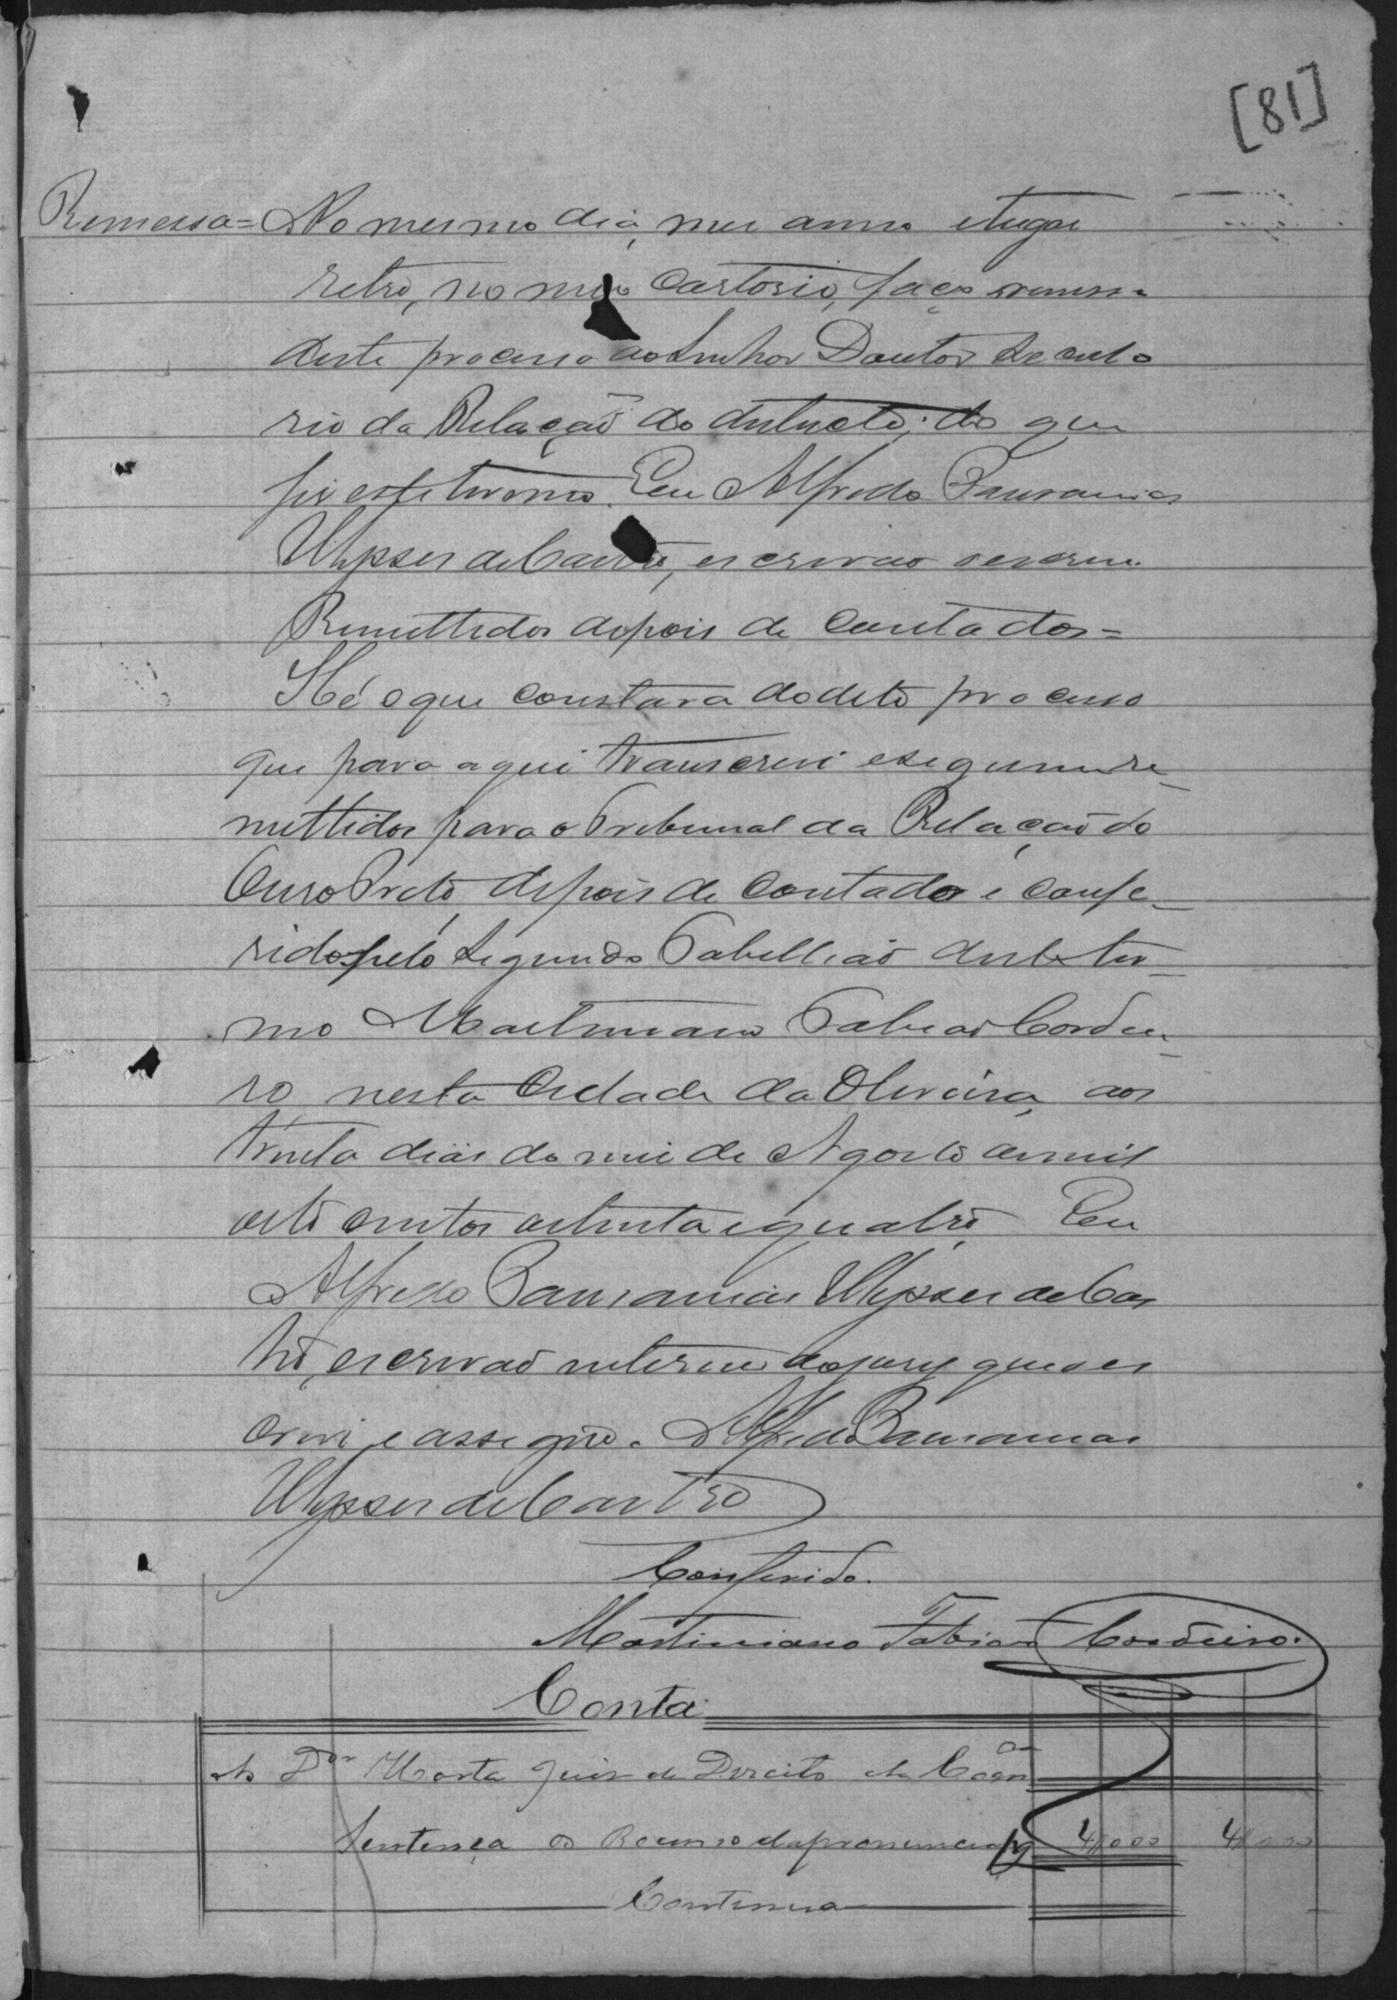 [81]
Remessa = No mesmo dia, mes anno e lugar
retro, no meu cartorio, faço remessa
deste processo ao Senhor Doutor Secreta
rio da Relação do destricto; do que
fiz este termo. Eu Alfredo Pausanias
Ulysses de Castro, escrivão o escrevi.
Remettidos depois de contados =
Hé o que constava do dito processo
que para aqui transcrevi e seguem re_
mettidos para o Tribunal da Relação do
Ouro Preto, depois de contados e confe_
ridos pelo Segundo Tabellião deste ter_
mo Martiniano Fabião Cordei_
ro nesta Cidade da Oliveira, aos
trinta dias do mez de Agosto de mil
oito centos oitenta e quatro. Eu
Alfredo Pausanias Ulysses de Cas
tro, escrivão interino do jury que o es
crevi e assigno. Alfredo Pausanias
Ulysses de Castro
Conferido.
Martiniano Fabião Cordeiro.
Conta
Ao Dor Horta Juiz de Direito da Coma
Sentença do Recurso da pronuncia 4$000 4$000
Continua